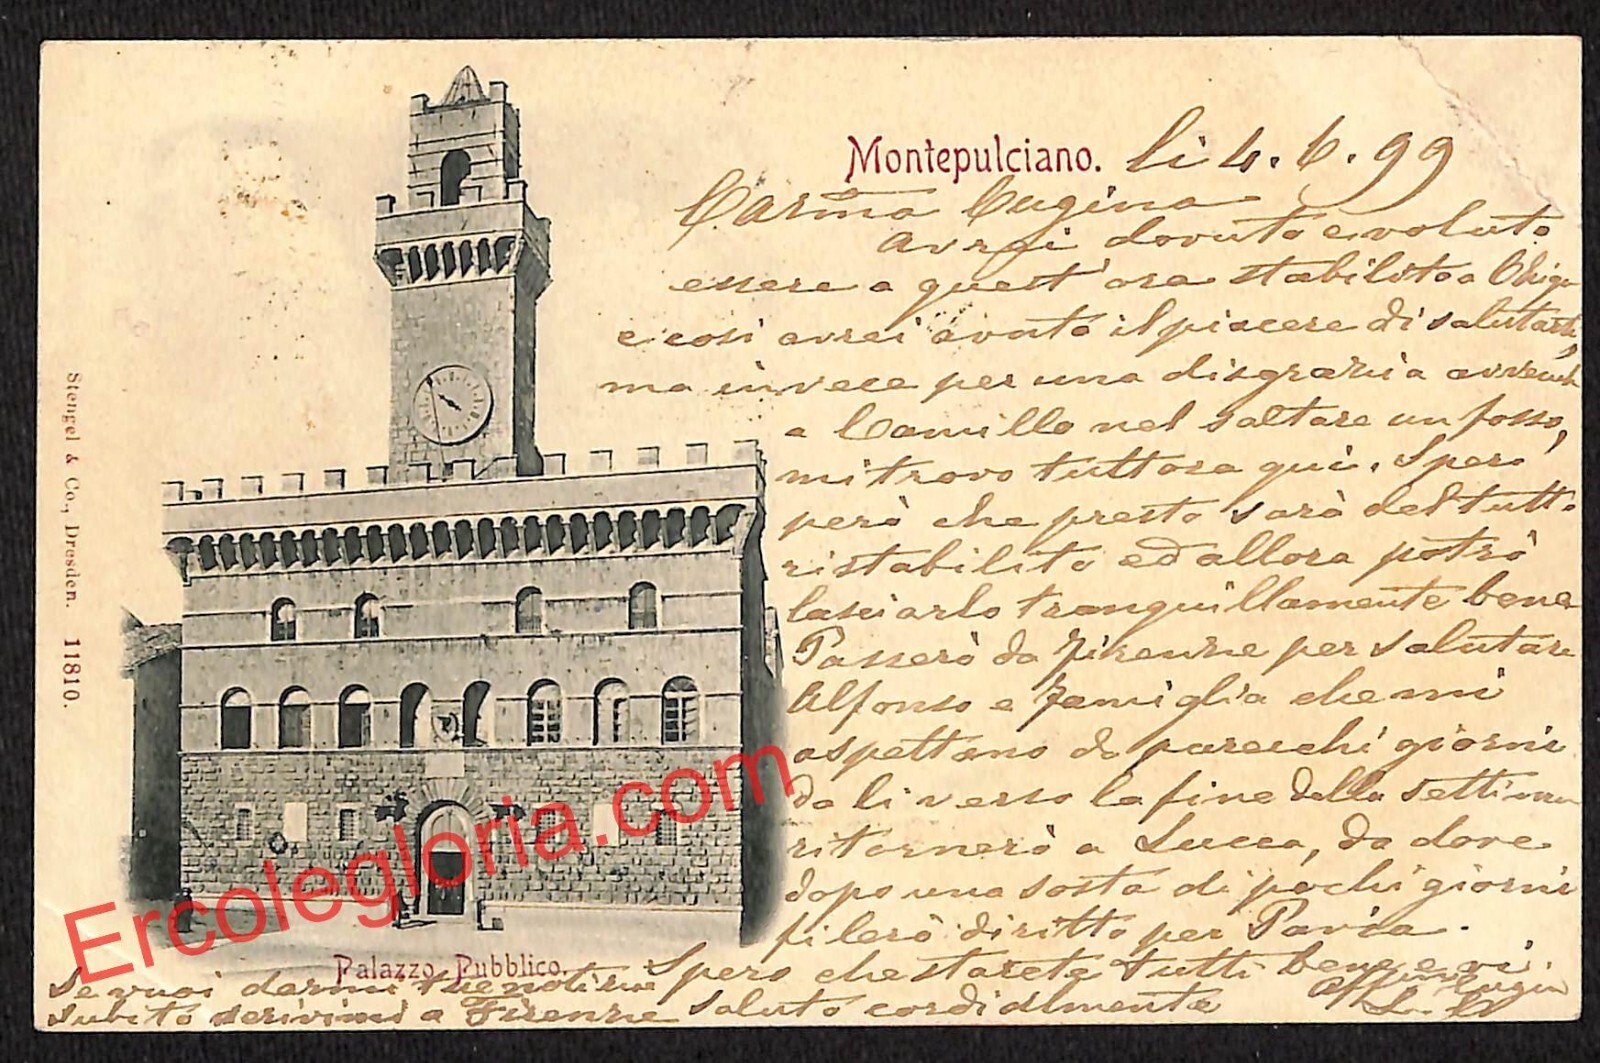 Montepulciano. li 4.6.99
Carma Cugina
Avrei dovuto e voluto
essere a quest'ora stabilito a
e così avrei avuto il piacere di salutarti,
ma invece per una disgrazia
a Camillo nel saltare un fosso,
mi trovo tuttora qui. Spero
però che presto sarà del tutto
ristabilito ed allora potrò
lasciarlo tranquillamente bene
Passerò da Firenze per salutare
Alfonso e famiglia che mi
aspettano da parecchi giorni
da lì verso la fine della
ritornerò a Lucca, da dove
dopo una sosta di pochi giorni
filerò diritto per Pavia.
Spero che starete tutti bene e vi
saluto cordialmente
Se vuoi darmi tue notizie
subito scrivimi a Firenze
Palazzo Pubblico.
Stengel & Co., Dresden. 11810.
Ercolegloria.com